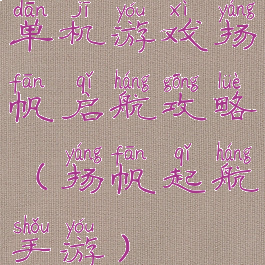 dān jī yóu xì yáng
单机游戏扬
fān qǐ háng gōng lüè
帆启航攻略
yáng fān qǐ háng
（扬帆起航
shǒu yóu
手游）